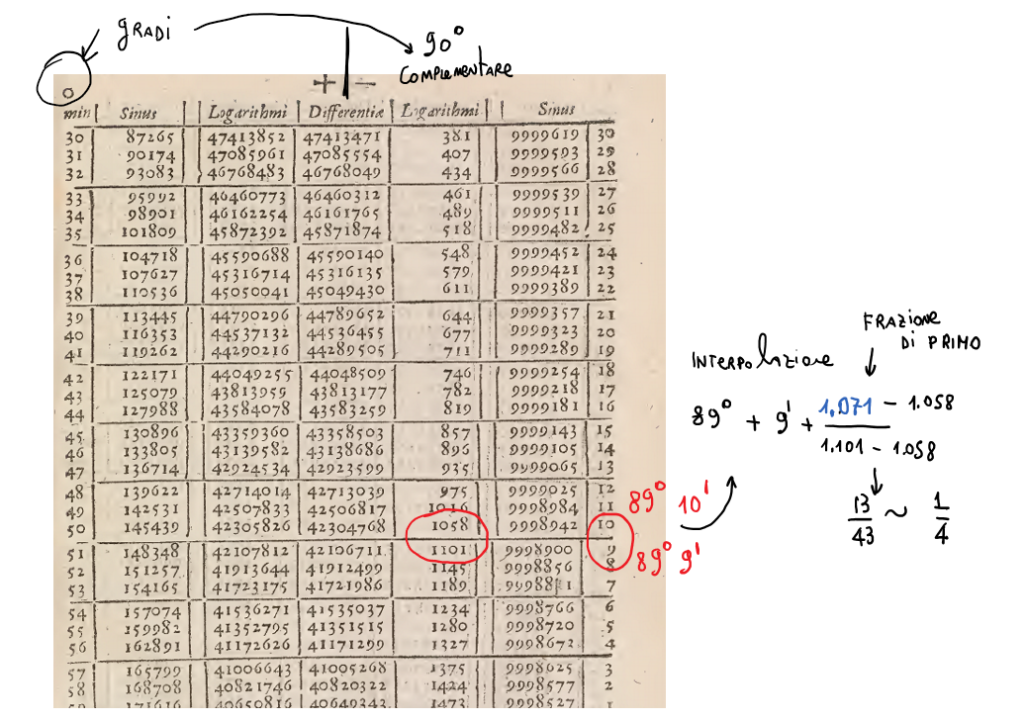 GRADI
90°
COMPLEMENTARE
+ | −
0
min | Sinus | Logarithmi | Differentiæ | Logarithmi | Sinus
30 87265 47413852 47413471 381 9999619 30
31 90174 47085961 47085554 407 9999593 29
32 93083 46768483 46768049 434 9999566 28
33 95992 46460773 46460312 461 9999539 27
34 98901 46162254 46161765 489 9999511 26
35 101809 45872392 45871874 518 9999482 25
36 104718 45590688 45590140 548 9999452 24
37 107627 45316714 45316135 579 9999421 23
38 110536 45050041 45049430 611 9999389 22
39 113445 44790296 44789652 644 9999357 21
40 116353 44537132 44536455 677 9999323 20
41 119262 44290216 44289505 711 9999289 19
42 122171 44049255 44048509 746 9999254 18
43 125079 43813959 43813177 782 9999218 17
44 127988 43584078 43583259 819 9999181 16
45 130896 43359360 43358503 857 9999143 15
46 133805 43139582 43138686 896 9999105 14
47 136714 42924534 42923599 935 9999065 13
48 139622 42714014 42713039 975 9999025 12
49 142531 42507833 42506817 1016 9998984 11
50 145439 42305826 42304768 1058 9998942 10
51 148348 42107812 42106711 1101 9998900 9
52 151257 41913644 41912499 1145 9998856 8
53 154165 41723175 41721986 1189 9998811 7
54 157074 41536271 41535037 1234 9998766 6
55 159982 41352795 41351515 1280 9998720 5
56 162891 41172626 41171299 1327 9998672 4
57 165799 41006643 41005268 1375 9998625 3
58 168708 40821746 40820322 1424 9998577 2
171616 40650816 40649343 1473 9998527 1
89° 10'
89° 9'
INTERPOLAZIONE
FRAZIONE
DI PRIMO
89° + 9' + 1.071 − 1.058
1.101 − 1.058
13 ~ 1
43 4